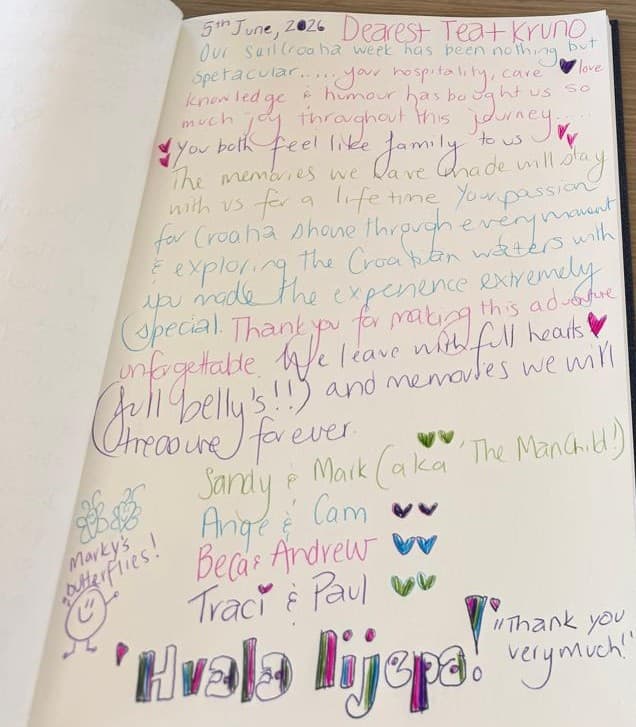 5th June, 2026 Dearest Tea + Kruno
Our sail Croaha week has been nothing but
spetacular..... your hospitality, care love
knowledge & humour has bought us so
much joy throughout this journey.....
You both feel like family to us
The memories we have made will stay
with us for a life time Your passion
for Croaha shone through every moment
& exploring the Croatian waters with
you made the experience extremely
special. Thank you for making this adventure
unforgettable. We leave with full hearts
(full belly's!!) and memories we will
treasure forever.
Sandy & Mark (aka 'The ManChild!)
Ange & Cam
Beca & Andrew
Traci & Paul
Marky's
butterflies!
'Hvala lijepa!'
"Thank you
very much!"